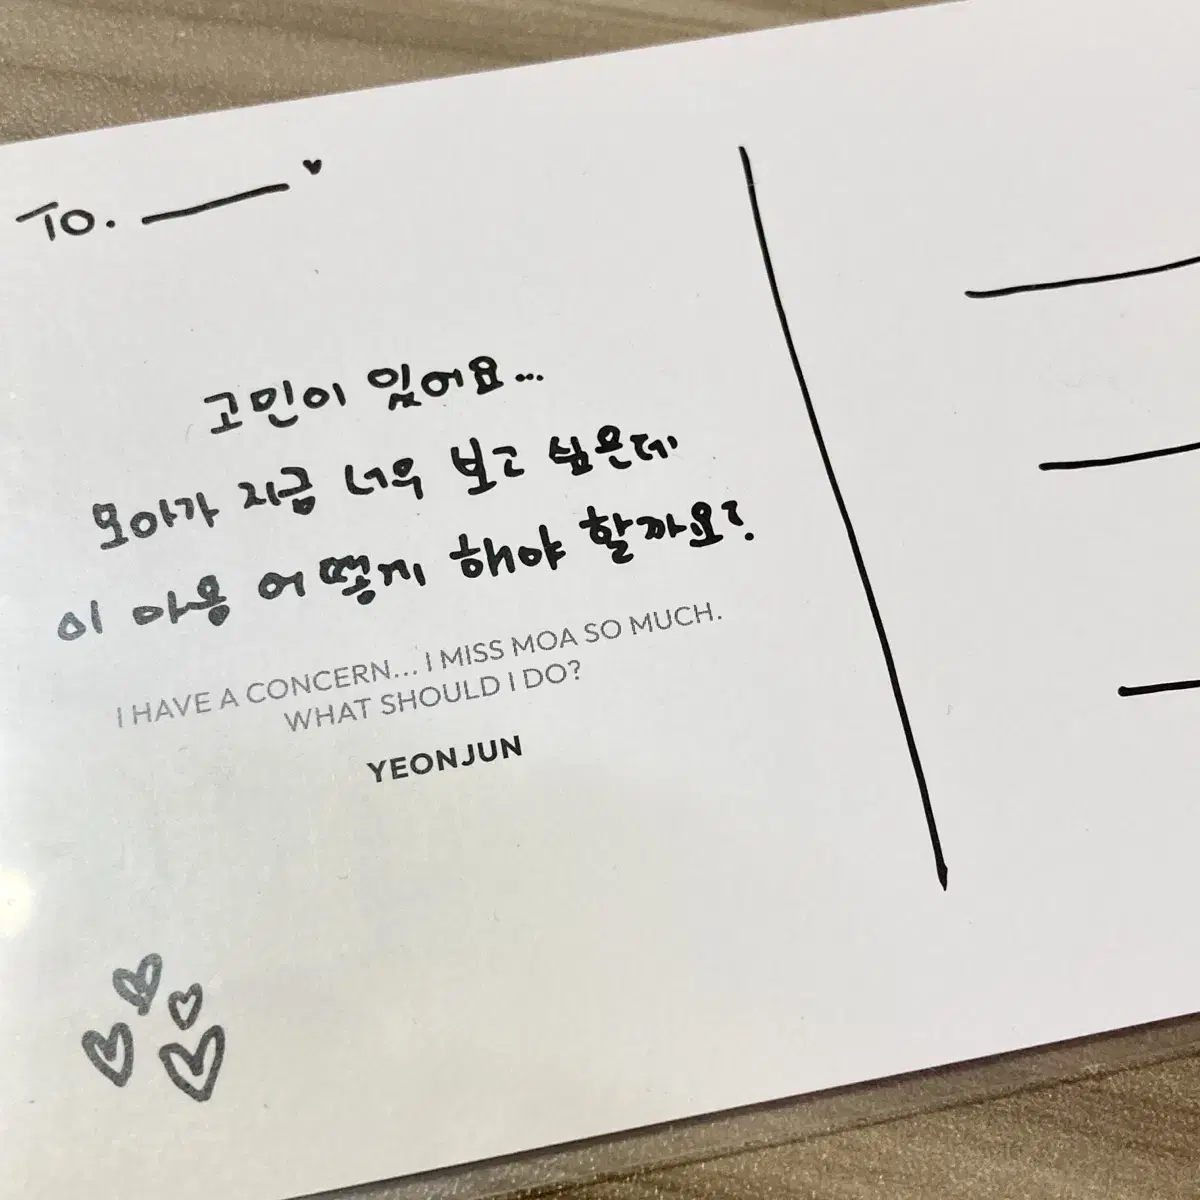 To. ___♥
고민이 있어요...
모아가 지금 너무 보고 싶은데
이 마음 어떻게 해야 할까요?
I HAVE A CONCERN... I MISS MOA SO MUCH.
WHAT SHOULD I DO?
YEONJUN